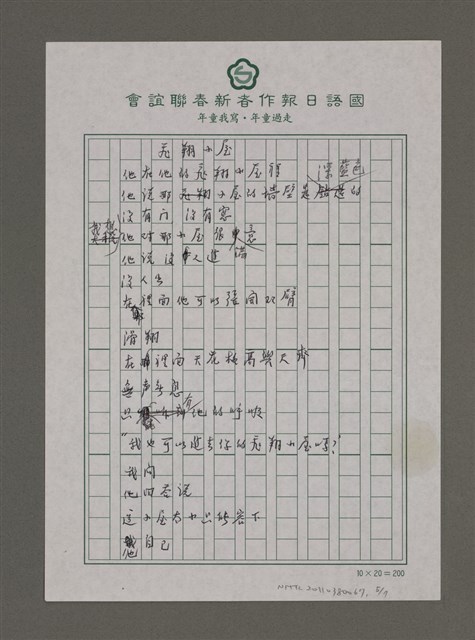 會誼聯春新者作報日語國
年童我寫・年童過走
飛翔小屋
他在他的飛翔小屋裡
深藍色
他說那飛翔小屋的牆壁是的
沒有門 沒有窗
他對那小屋很
他說沒人進
沒人出
在裡面他可以張開双臂
滑翔
在裡面天花板高與天齊
無声無息
只他的呼吸
"我也可以進去你的飛翔小屋嗎?"
我問
他回答說
這小屋太小只能容下
他自己
10×20=200